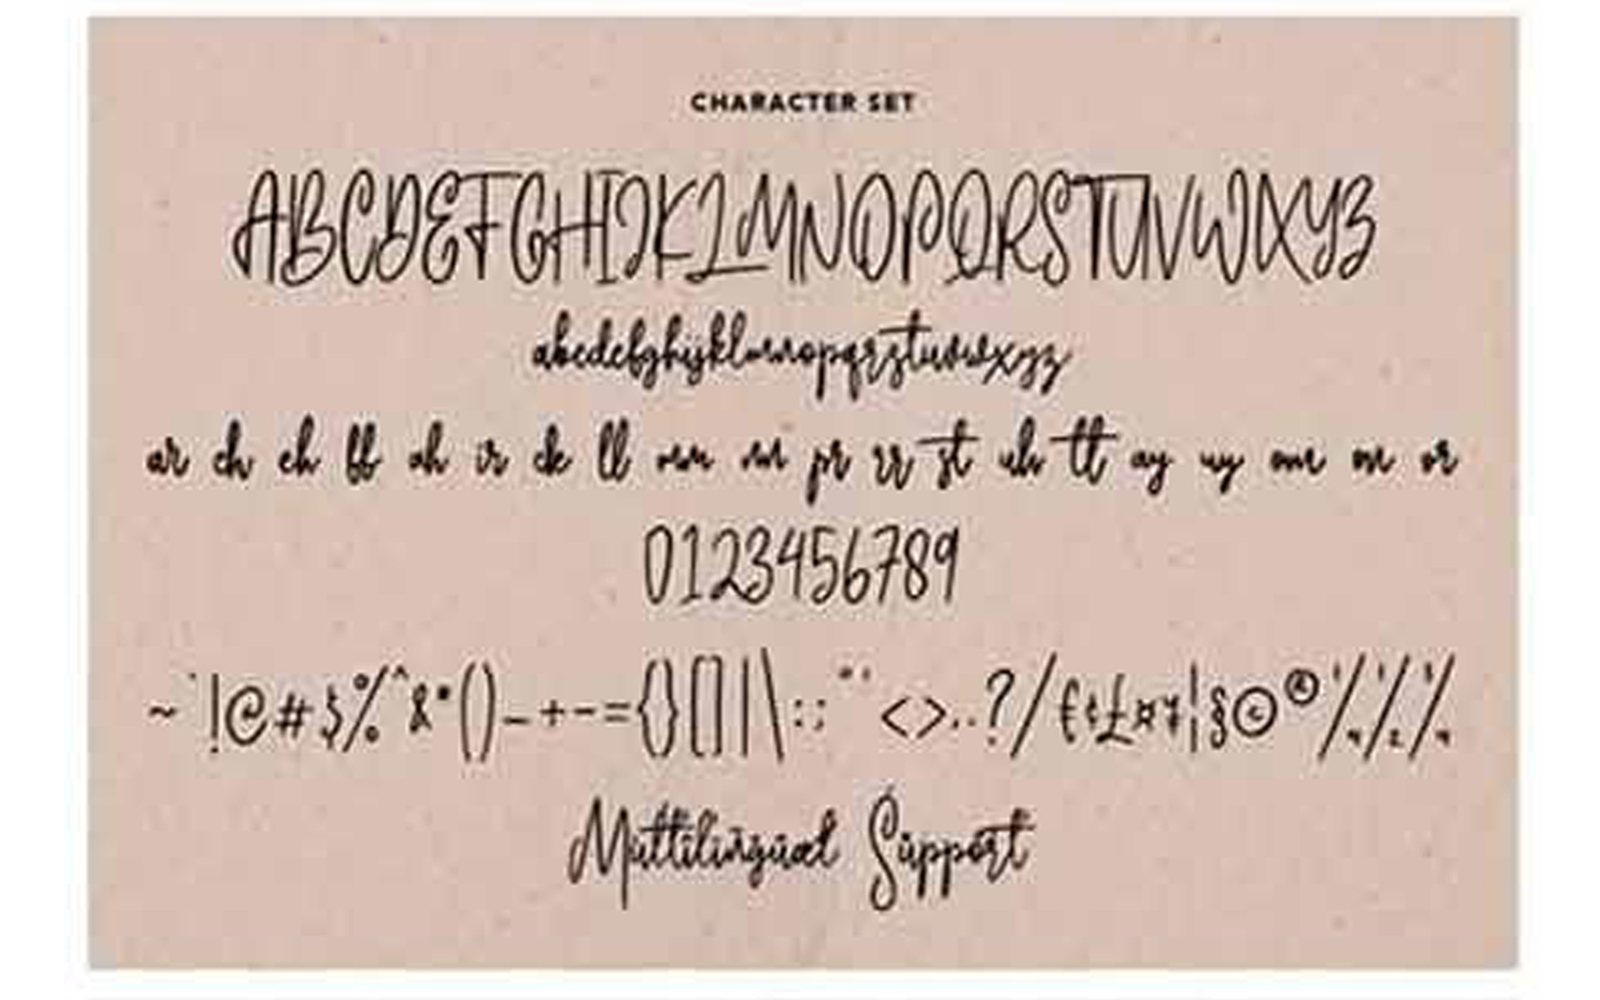 CHARACTER SET
ABCDEFGHIJKLMNOPQRSTUVWXYZ
abcdefghijklmnopqrstuvwxyz
ar ch eh ff ah ir ck ll mm nn pr rr st uh tt ay uy om on or
0123456789
~`!@#$%^&*()_+-={}[]|\:;"'<>,.?/€¢£¤¥¦§©®
Multilingual Support